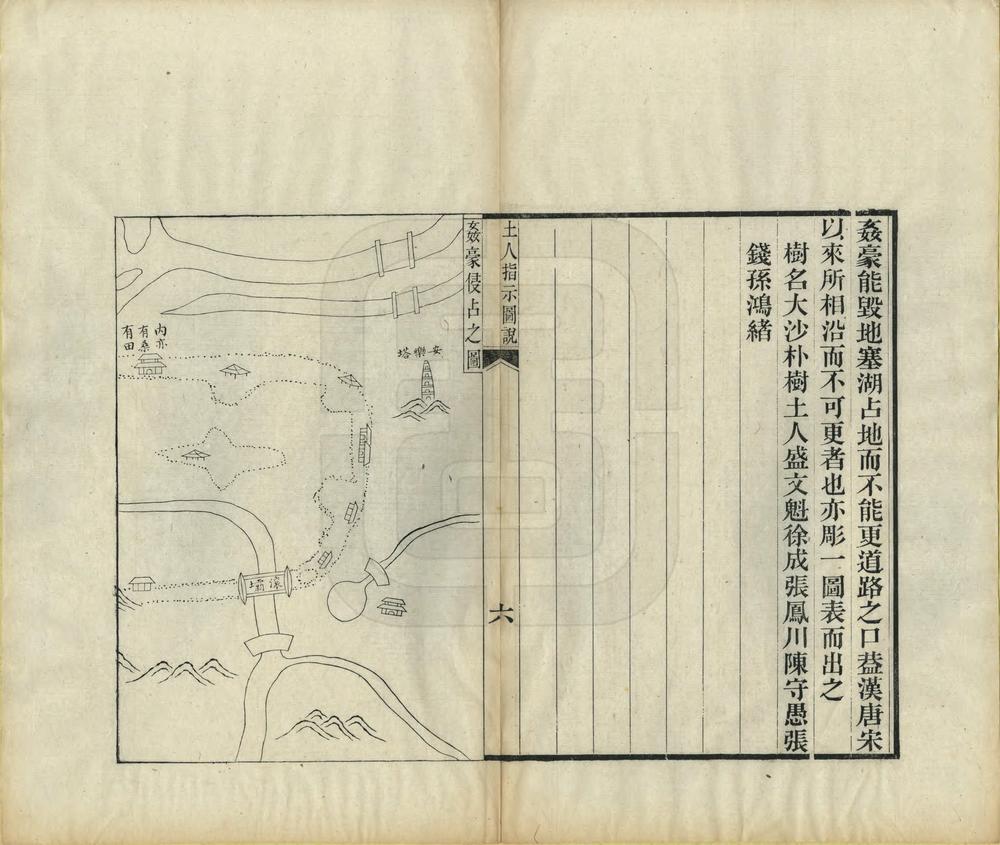 姦豪能毀地塞湖占地而不能更道路之口葢漢唐宋
以來所相沿而不可更者也亦彫一圖表而出之
樹名大沙朴樹土人盛文魁徐成張鳳川陳守愚張
錢孫鴻緒
土人指示圖說
六
姦豪侵占之圖
安樂塔
內亦
有桑
有田
壩